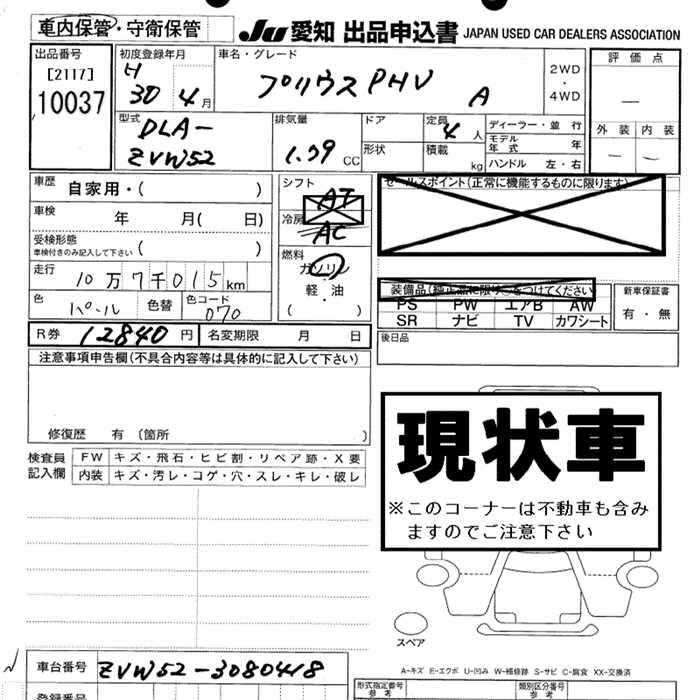 車内保管・守衛保管
Ju 愛知 出品申込書 JAPAN USED CAR DEALERS ASSOCIATION
出品番号
[2117]
10037
初度登録年月
H
30 4月
車名・グレード
プリウスPHV A
2WD
・
4WD
評価点
—
外装 内装
— —
型式
DLA-
ZVW52
排気量
1.79 CC
ドア
形状
定員
4人
積載
kg
ディーラー・並行
モデル年式 年
ハンドル 左・右
車歴 自家用・( )
車検 年 月( 日)
受検形態
車検付きのみ記入して下さい ( )
走行 10万7千015km
色 パール 色替 色コード 070
シフト
AT
冷房
AC
燃料
ガソリン
軽・油
( )
セールスポイント(正常に機能するものに限ります)
装備品(純正品に限り○をつけてください)
PS PW エアB AW
SR ナビ TV カワシート
新車保証書
有・無
R券 12840円 名変期限 月 日
後日品
注意事項申告欄(不具合内容等は具体的に記入して下さい)
修復歴 有 (箇所 )
現状車
※このコーナーは不動車も含み
ますのでご注意下さい
検査員
記入欄
FW キズ・飛石・ヒビ割・リペア跡・X要
内装 キズ・汚レ・コゲ・穴・スレ・キレ・破レ
スペア
A-キズ E-エクボ U-凹み W-補修跡 S-サビ C-腐食 XX-交換済
車台番号 ZVW52-3080418
登録番号
形式指定番号
参考
類別区分番号
参考